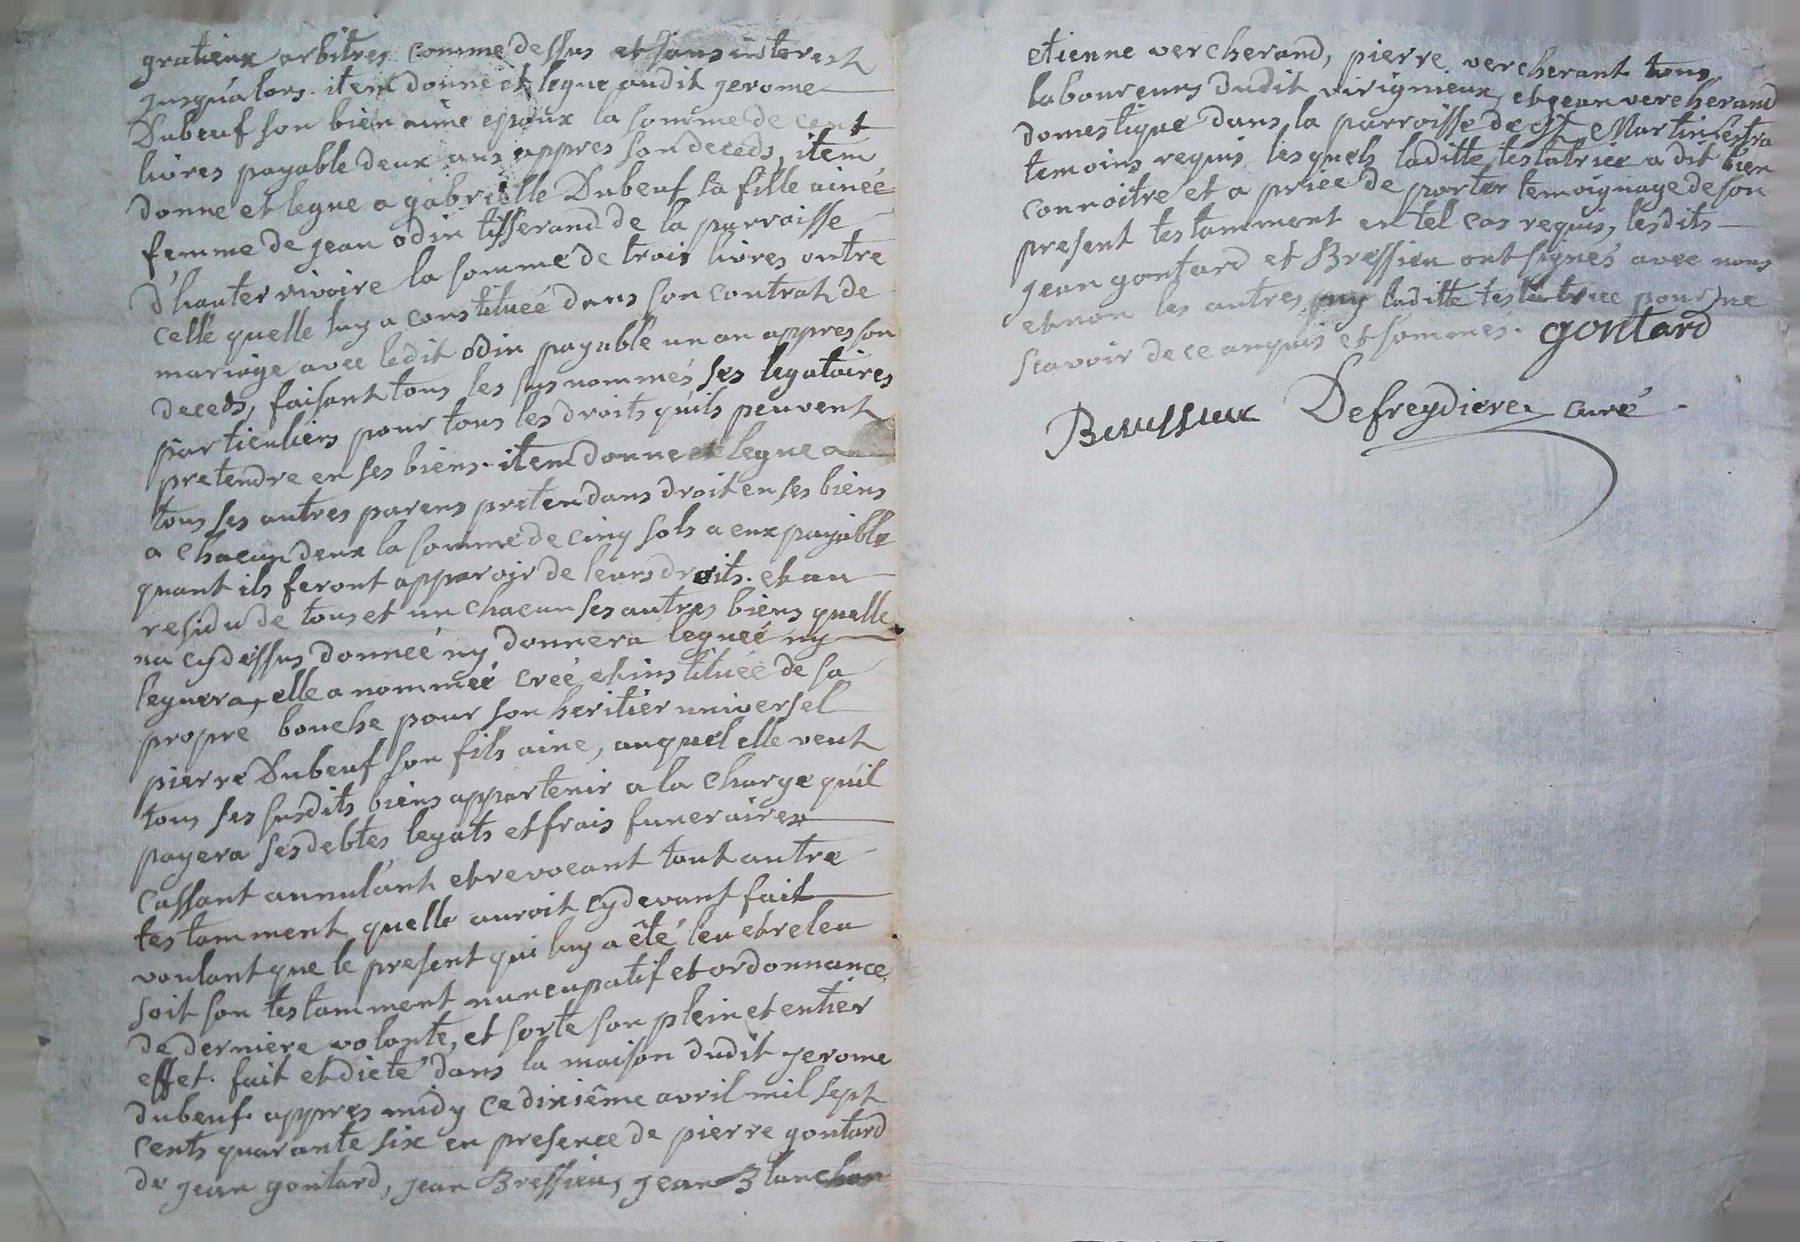 gratieux arbitres comme dessus et sans interest
jusqu'alors. item donne et legue audit jerome
Dubeuf son bien aimé epoux la somme de cent
livres payable deux ans appres son deceds, item
donne et legue a gabrielle Dubeuf sa fille ainée
femme de jean odin tisserand de la parroisse
d'hauterrivoire la somme de trois livres outre
celle quelle luy a constituée dans son contrat de
mariage avec ledit odin payable un an appres son
deceds, faisant tous les sus nommés ses legataires
particuliers pour tous les droits qu'ils peuvent
pretendre en ses biens. item donne et legue a
tous ses autres parens pretendans droit en ses biens
a chacun deux la somme de cinq sols a eux payable
quant ils feront apparoir de leurs droits. et au
residu de tous et un chacun ses autres biens quelle
na cydessus donnée ny donnera leguée ny
leguera, elle a nommée creé et instituée de sa
propre bouche pour son heritier universel
pierre Dubeuf son fils aine, auquel elle veut
tous ses susdits biens appartenir a la charge qu'il
payera ses debtes legats et frais funeraires
cassant annulant et revocant tout autre
testamment quelle auroit cydevant fait
voulant que le present qui luy a êté leu et releu
soit son testamment nuncupatif et ordonnance
de derniere volonte, et sorte son plein et entier
effet. fait et dicté dans la maison dudit jerome
dubeuf appres midy ce dixiême avril mil sept
cents quarante six en presence de pierre gontard
de jean gontard, jean Bressieu, jean Blanchon
etienne vercherand, pierre vercherant tous
laboureurs dudit virignieux, et jean vercherand
domestique dans la parroisse de St Martin Lestra
temoins requis lesquels laditte testatrice a dit bien
connoitre et a priée de porter temoignage de son
present testamment en tel cas requis, lesdits
jean gontard et Bressieu ont signés avec nous
et non les autres ny laditte testatrice pour ne
scavoir de ce enquis et sommés. gontard
Defreydiere curé